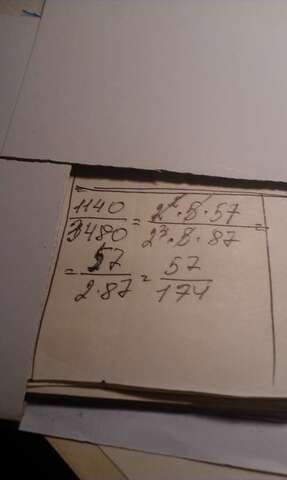 1140/3480 = 2²·5·57/2³·5·87 =
= 57/2·87 = 57/174